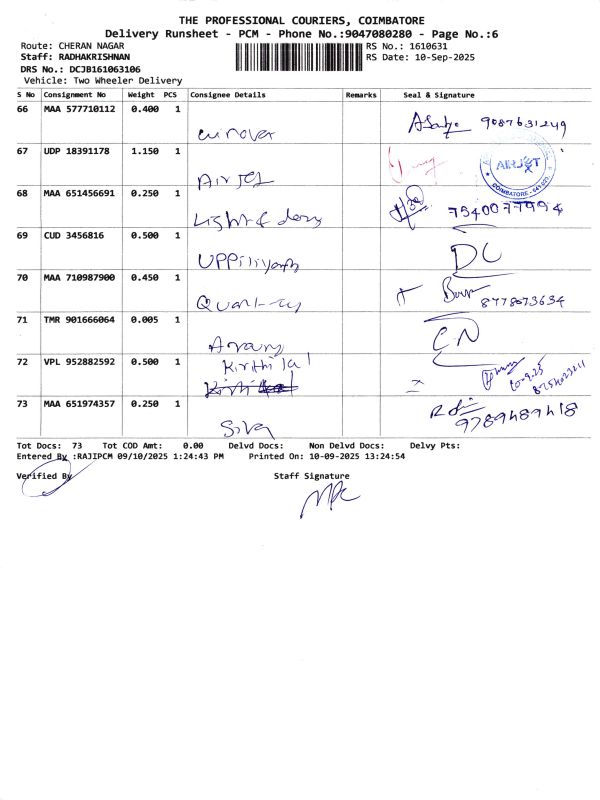 THE PROFESSIONAL COURIERS, COIMBATORE
Delivery Runsheet - PCM - Phone No.:9047080280 - Page No.:6
Route: CHERAN NAGAR RS No.: 1610631
Staff: RADHAKRISHNAN RS Date: 10-Sep-2025
DRS No.: DCJB161063106
Vehicle: Two Wheeler Delivery
S No Consignment No Weight PCS Consignee Details Remarks Seal & Signature
66 MAA 577710112 0.400 1
9087631249
67 UDP 18391178 1.150 1 Airjet
AIRJET
COIMBATORE
68 MAA 651456691 0.250 1
7540077994
69 CUD 3456816 0.500 1
DC
70 MAA 710987900 0.450 1
8778673634
71 TMR 901666064 0.005 1
CN
72 VPL 952882592 0.500 1 Kirthilal
10-9-25
73 MAA 651974357 0.250 1 Siva
9789489418
Tot Docs: 73 Tot COD Amt: 0.00 Delvd Docs: Non Delvd Docs: Delvy Pts:
Entered By :RAJIPCM 09/10/2025 1:24:43 PM Printed On: 10-09-2025 13:24:54
Verified By Staff Signature